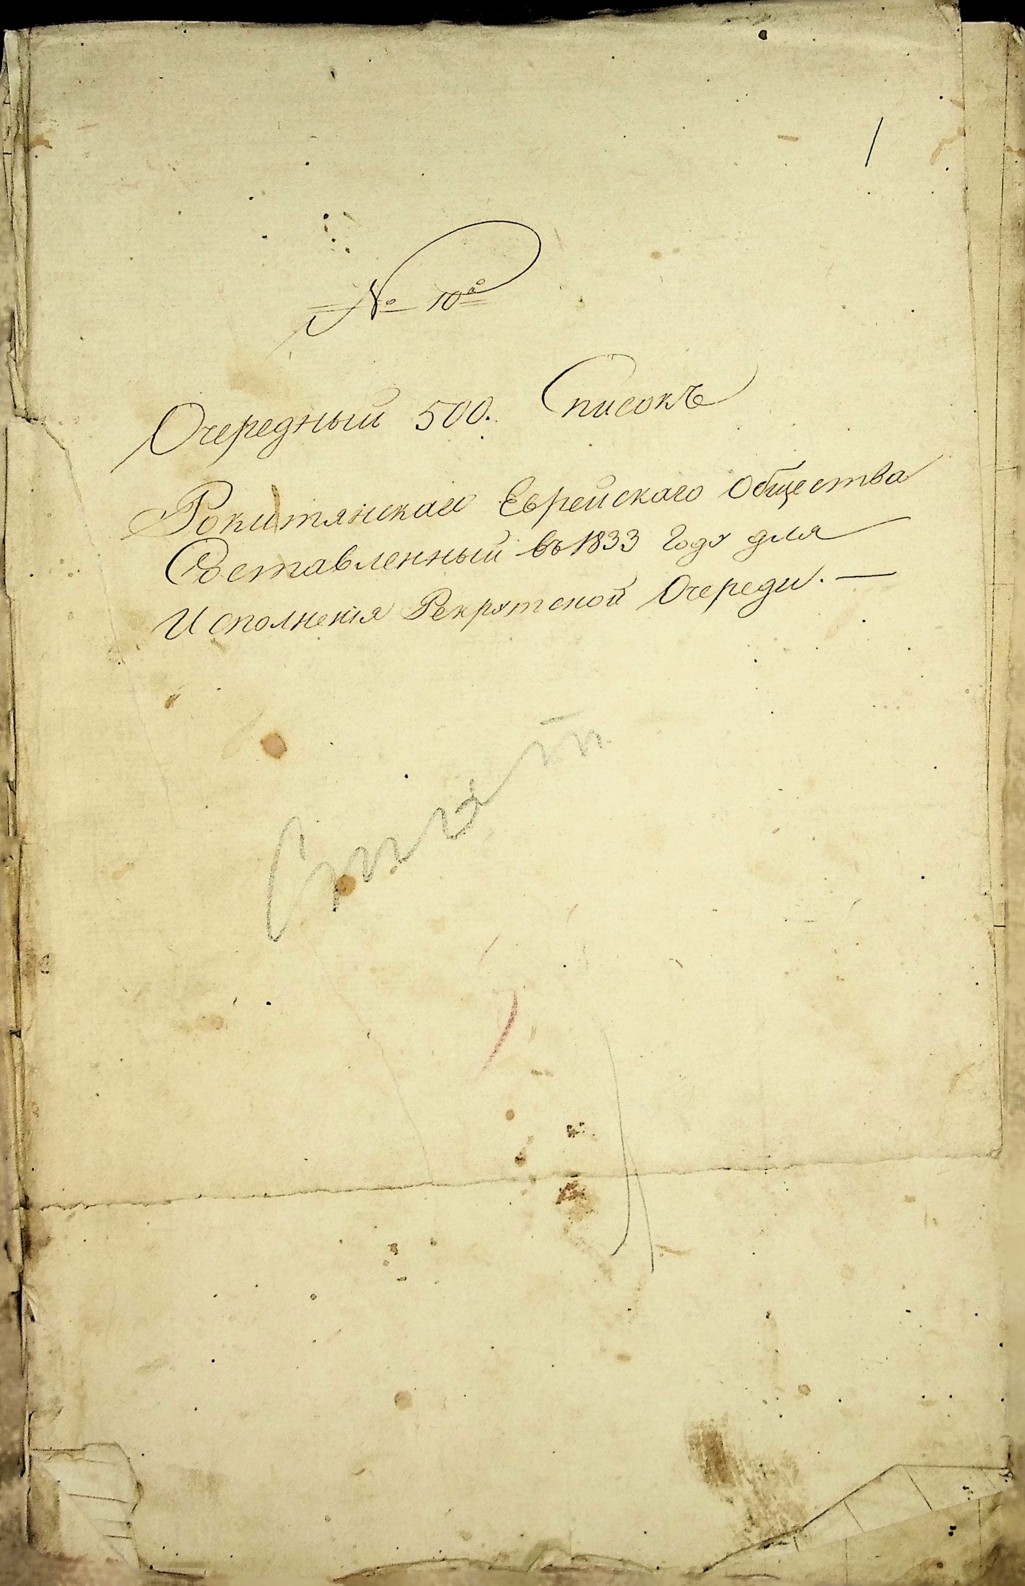 1
№ 10й
Очередный 500. Списокъ
Рокитянскаго Еврейскаго Общества
Составленный въ 1833 Году для
Исполненія Рекрутской Очереди. —